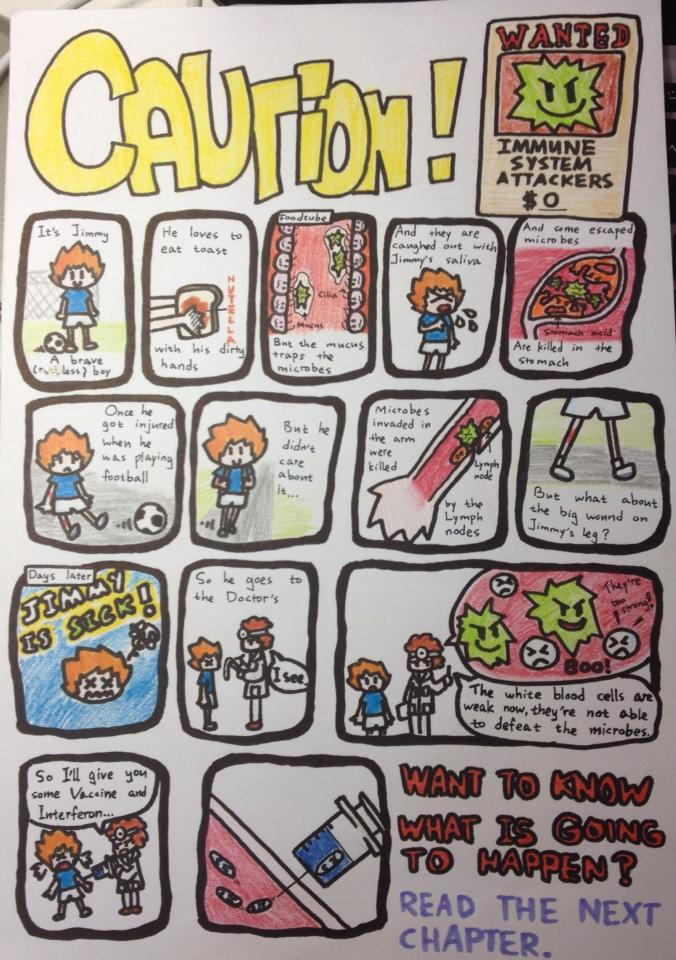 CAUTION!
WANTED
IMMUNE
SYSTEM
ATTACKERS
$0
It's Jimmy
A brave
boy
He loves to
eat toast
NUTELLA
with his dirty
hands
Foodtube
Cilia
Mucus
But the mucus
traps the
microbes
And they are
caughed out with
Jimmy's saliva
And some escaped
microbes
Stomach acid
Are killed in the
stomach
Once he
got injured
when he
was playing
football
But he
didn't
care
about
it...
Microbes
invaded in
the arm
were
killed
Lymph
node
by the
Lymph
nodes
But what about
the big wound on
Jimmy's leg?
Days later
JIMMY
IS SICK!
So he goes to
the Doctor's
I see
They're
too
strong!
BOO!
The white blood cells are
weak now, they're not able
to defeat the microbes.
So I'll give you
some Vaccine and
Interferon...
WANT TO KNOW
WHAT IS GOING
TO HAPPEN?
READ THE NEXT
CHAPTER.